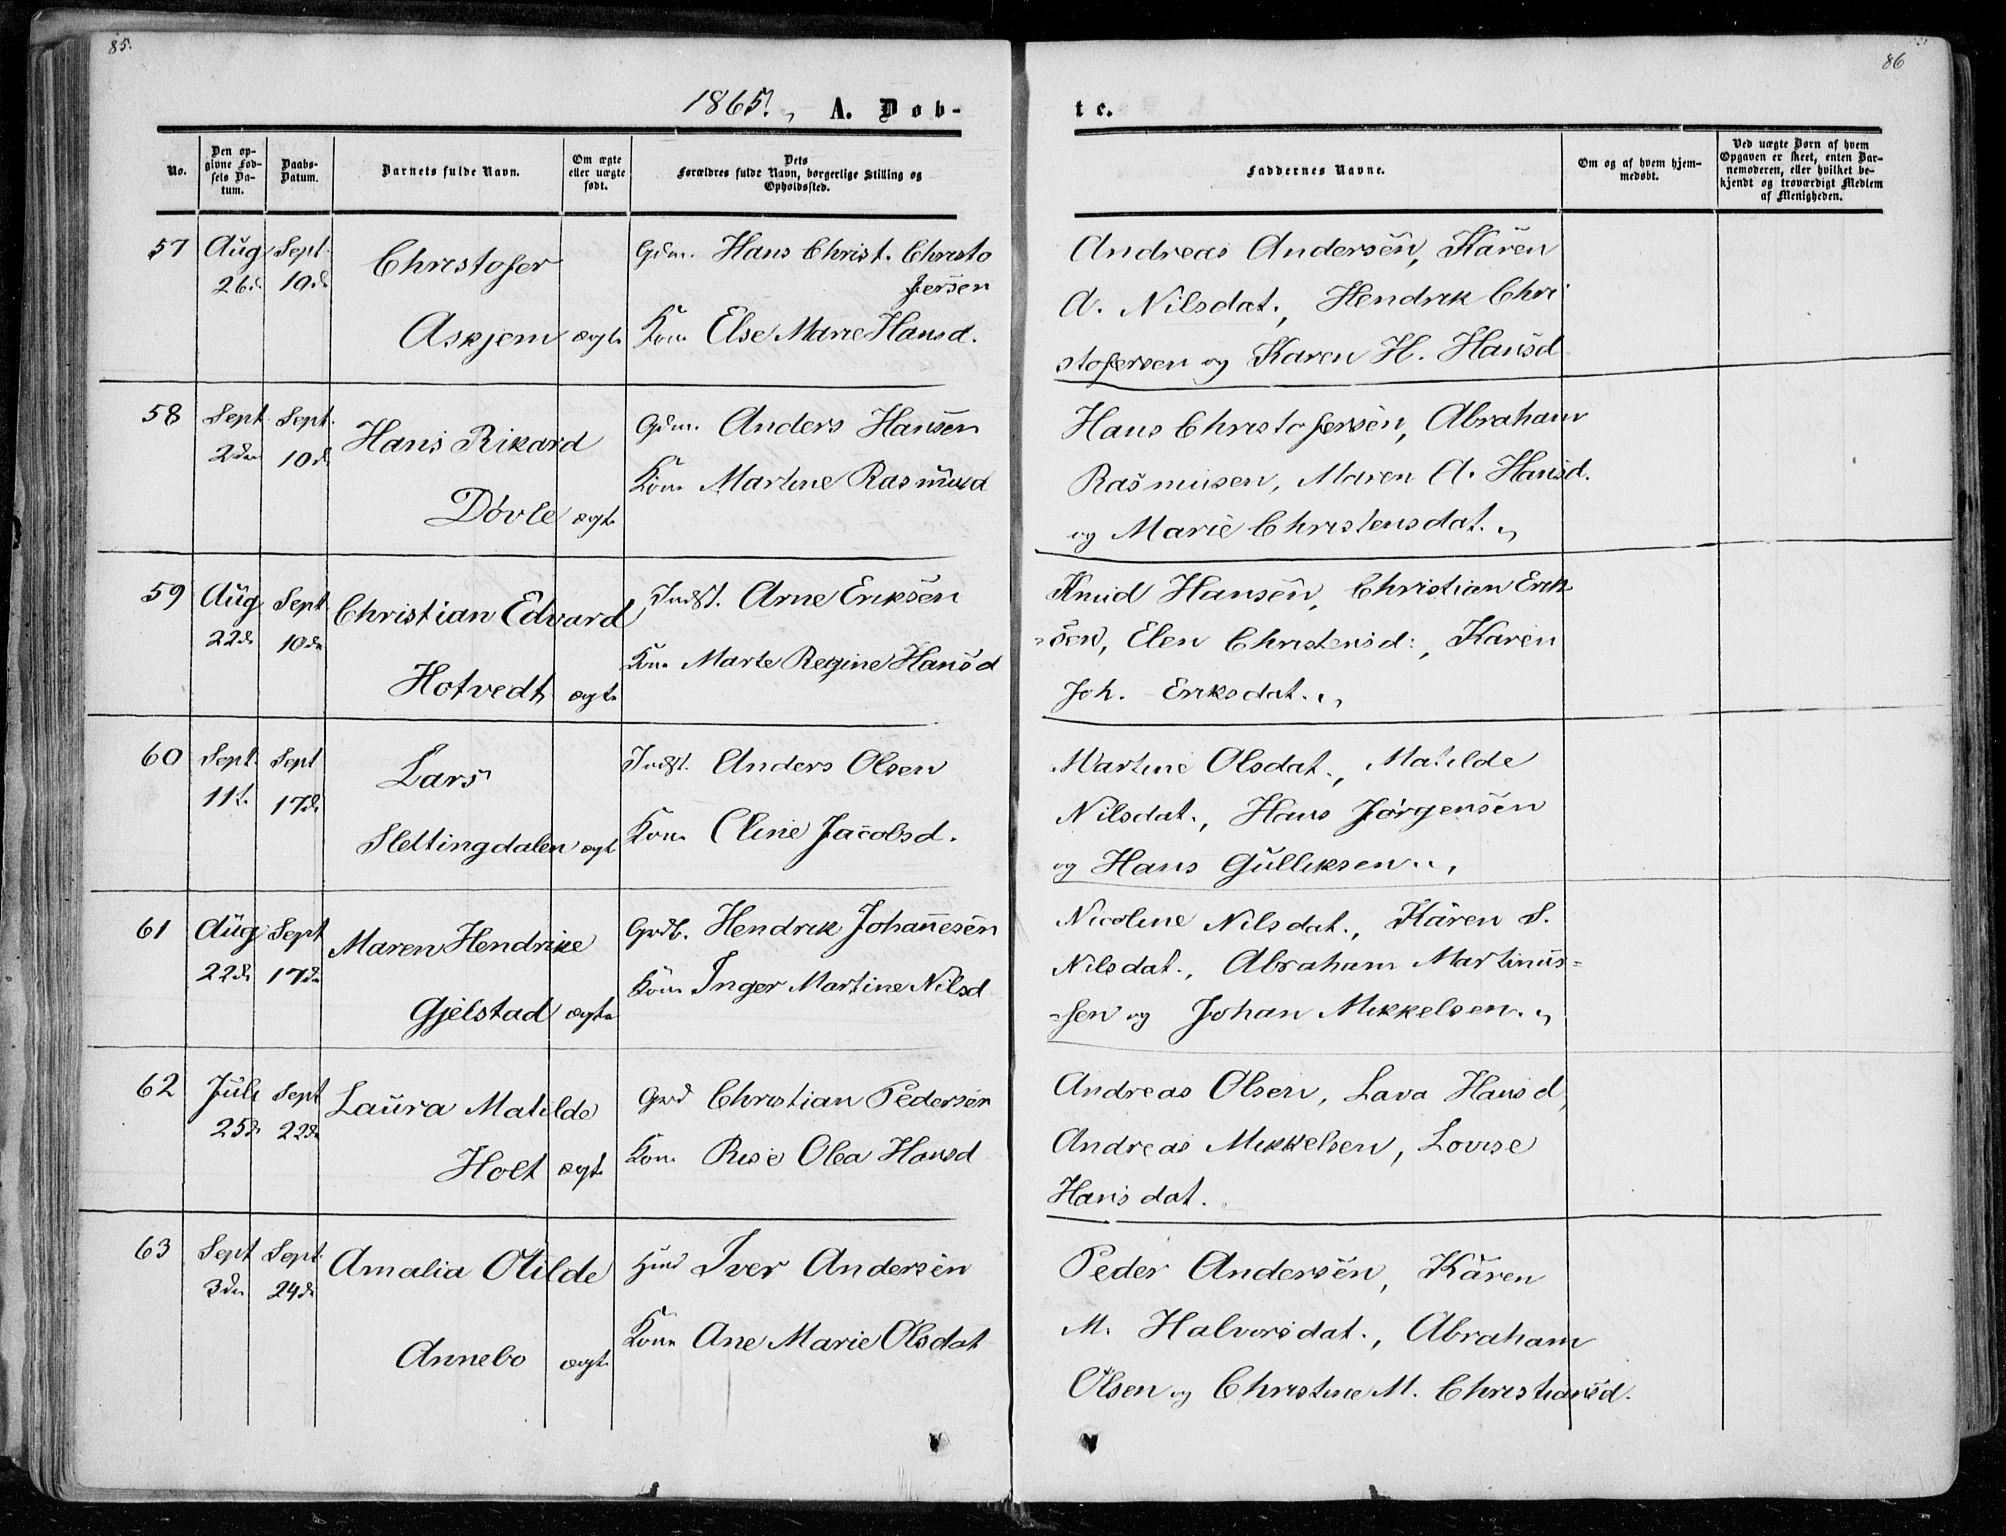 85.
86
1865. A. Døb-
te.
No.
Den op-
givne Fød-
sels Da-
tum.
Daabs-
Datum.
Barnets fulde Navn.
Om ægte
eller uægte
født.
Dets
Forældres fulde Navn, borgerlige Stilling og
Opholdssted.
Faddernes Navne.
Om og af hvem hjem-
medøbt.
Ved uægte Børn af hvem
Opgaven er skeet, enten Bar-
nemoderen, eller hvilket be-
kjendt og troværdigt Medlem
af Menigheden.
57 Aug Sept. Christofer Gdm. Hans Christ. Christo
26d 10d fersen
Askjem ægte Kone Else Marie Hansd.
Andreas Andersen, Karen
A. Nilsdat., Hendrik Chri
stofersen og Karen H. Hansd
58 Sept. Sept. Hans Rikard Gdm. Anders Hansen
2den 10d Kone Martine Rasmusd
Døvle ægte
Hans Christofersen, Abraham
Rasmusen, Maren A. Hansd.
og Marie Christensdat. „
59 Aug Sept Christian Edvard Indst. Arne Eriksen
22d 10de Kone Marte Regine Hansd
Hotvedt ægte
Knud Hansen, Christian Erik
=sen, Elen Christensd:, Karen
Joh. Eriksdat. „
60 Sept. Sept Lars Indst. Anders Olsen
11t. 17d Kone Cline Jacobsd.
Slettingdalen ægte
Martine Olsdat., Matilde
Nilsdat., Hans Jørgensen
og Hans Gulliksen „
61 Aug Sept Maren Hendrike Grdb. Hendrik Johannesen
22d 17de Kone Inger Martine Nilsd
Gjelstad ægte
Nicoline Nilsdat., Karen S.
Nilsdat., Abraham Martinus=
=sen og Johan Mikkelsen. „
62 Juli Sept Laura Matilde Grd Christian Pedersen
25d 22de Kone Risie Olea Hansd
Holt ægte
Andreas Olsen, Lava Hansd,
Andreas Mikkelsen, Lovise
Hansdat.
63 Sept Sept. Amalia Otilde Hmd Iver Andersen
3den 24de Kone Ane Marie Olsdat
Annebo ægte
Peder Andersen, Karen
M. Halvorsdat., Abraham
Olsen og Christine M. Christiansd.